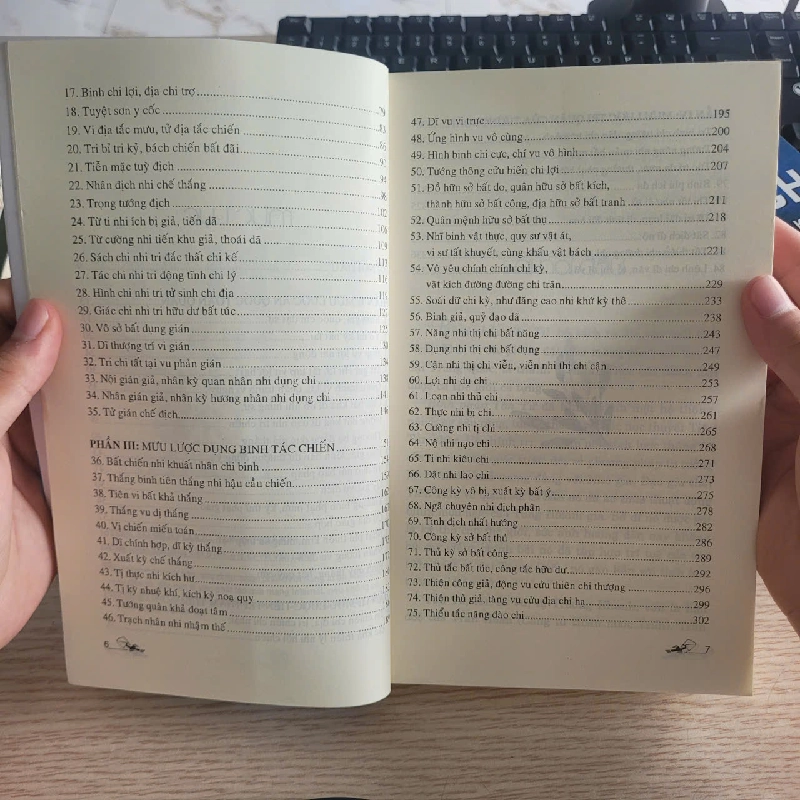 17. Binh chi lợi, địa chi trợ
18. Tuyệt sơn y cốc
19. Vi địa tắc mưu, tử địa tắc chiến
20. Tri bỉ tri kỷ, bách chiến bất đãi
21. Tiễn mặc tuỳ địch
22. Nhân địch nhi chế thắng
23. Trọng tướng địch
24. Từ ti nhi ích bị giả, tiến dã
25. Từ cường nhi tiến khu giả, thoái dã
26. Sách chi nhi tri đắc thất chi kế
27. Tác chi nhi tri động tĩnh chi lý
28. Hình chi nhi tri tử sinh chi địa
29. Giác chi nhi tri hữu dư bất túc
30. Vô sở bất dụng gián
31. Dĩ thượng trí vi gián
32. Tri chi tất tại vu phản gián
33. Nội gián giả, nhân kỳ quan nhân nhi dụng chi
34. Nhân gián giả, nhân kỳ hương nhân nhi dụng chi
35. Tử gián chế địch
PHẦN III: MƯU LƯỢC DỤNG BINH TÁC CHIẾN
36. Bất chiến nhi khuất nhân chi binh
37. Thắng binh tiên thắng nhi hậu cầu chiến
38. Tiên vi bất khả thắng
39. Thắng vu dị thắng
40. Vị chiến miếu toán
41. Dĩ chính hợp, dĩ kỳ thắng
42. Xuất kỳ chế thắng
43. Tị thực nhi kích hư
44. Tị kỳ nhuệ khí, kích kỳ noạ quy
45. Tướng quân khả đoạt tâm
46. Trạch nhân nhi nhậm thế
6
47. Dĩ vu vi trực 195
48. Ứng hình vu vô cùng 200
49. Hình binh chi cực, chí vu vô hình 204
50. Tướng thông cửu biến chi lợi 207
51. Đồ hữu sở bất do, quân hữu sở bất kích,
thành hữu sở bất công, địa hữu sở bất tranh 211
52. Quân mệnh hữu sở bất thụ 218
53. Nhĩ binh vật thực, quy sư vật át,
vi sư tất khuyết, cùng khấu vật bách 221
54. Vô yêu chính chính chi kỳ,
vật kích đường đường chi trận 229
55. Soái dữ chi kỳ, như đăng cao nhi khứ kỳ thê 233
56. Binh giả, quỷ đạo dã 238
57. Năng nhi thị chi bất năng 243
58. Dụng nhi thị chi bất dụng 247
59. Cận nhi thị chi viễn, viễn nhi thị chi cận 249
60. Lợi nhi dụ chi 253
61. Loạn nhi thủ chi 257
62. Thực nhi bị chi 261
63. Cường nhi tị chi 265
64. Nộ nhi nạo chi 268
65. Ti nhi kiêu chi 271
66. Dật nhi lao chi 273
67. Công kỳ vô bị, xuất kỳ bất ý 275
68. Ngã chuyên nhi địch phân 278
69. Tình địch nhất hướng 282
70. Công kỳ sở bất thủ 286
71. Thủ kỳ sở bất công 289
72. Thủ tắc bất túc, công tắc hữu dư 292
73. Thiện công giả, động vu cửu thiên chi thượng 296
74. Thiện thủ giả, tàng vu cửu địa chi hạ 299
75. Thiểu tắc năng đào chi 302
7